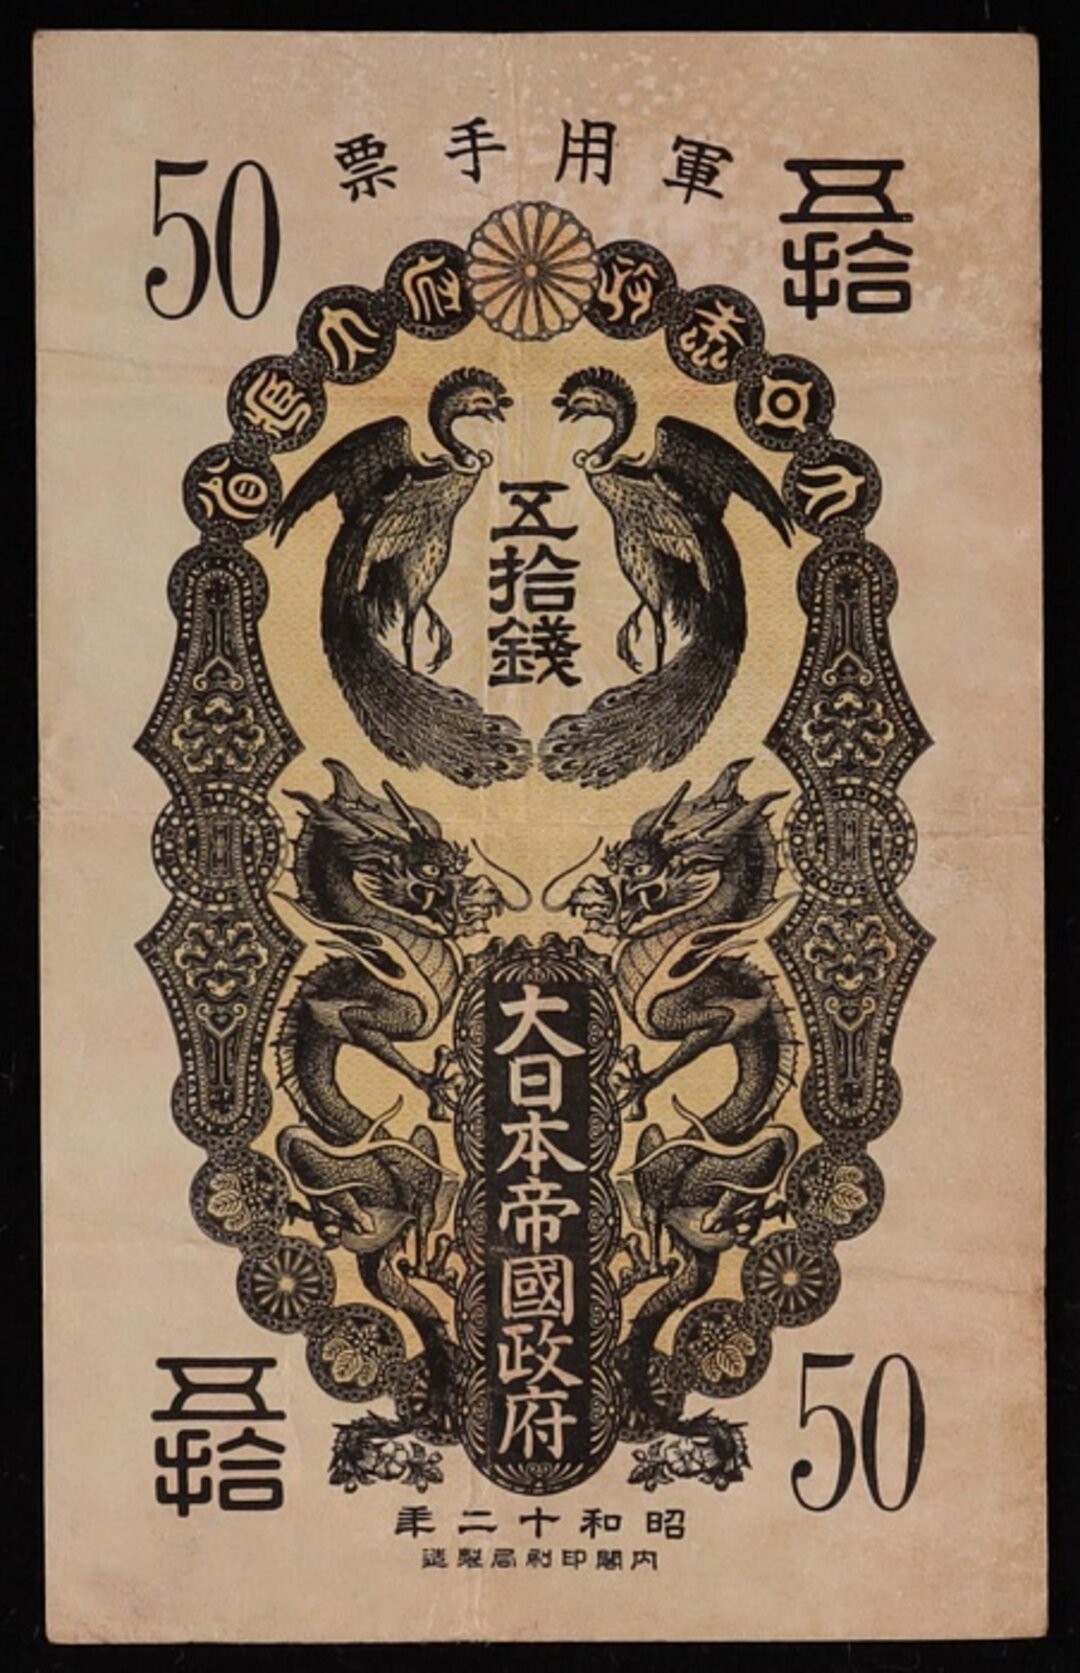 軍用手票
50
五拾
五拾錢
大日本帝國政府
五拾
50
昭和十二年
内閣印刷局製造